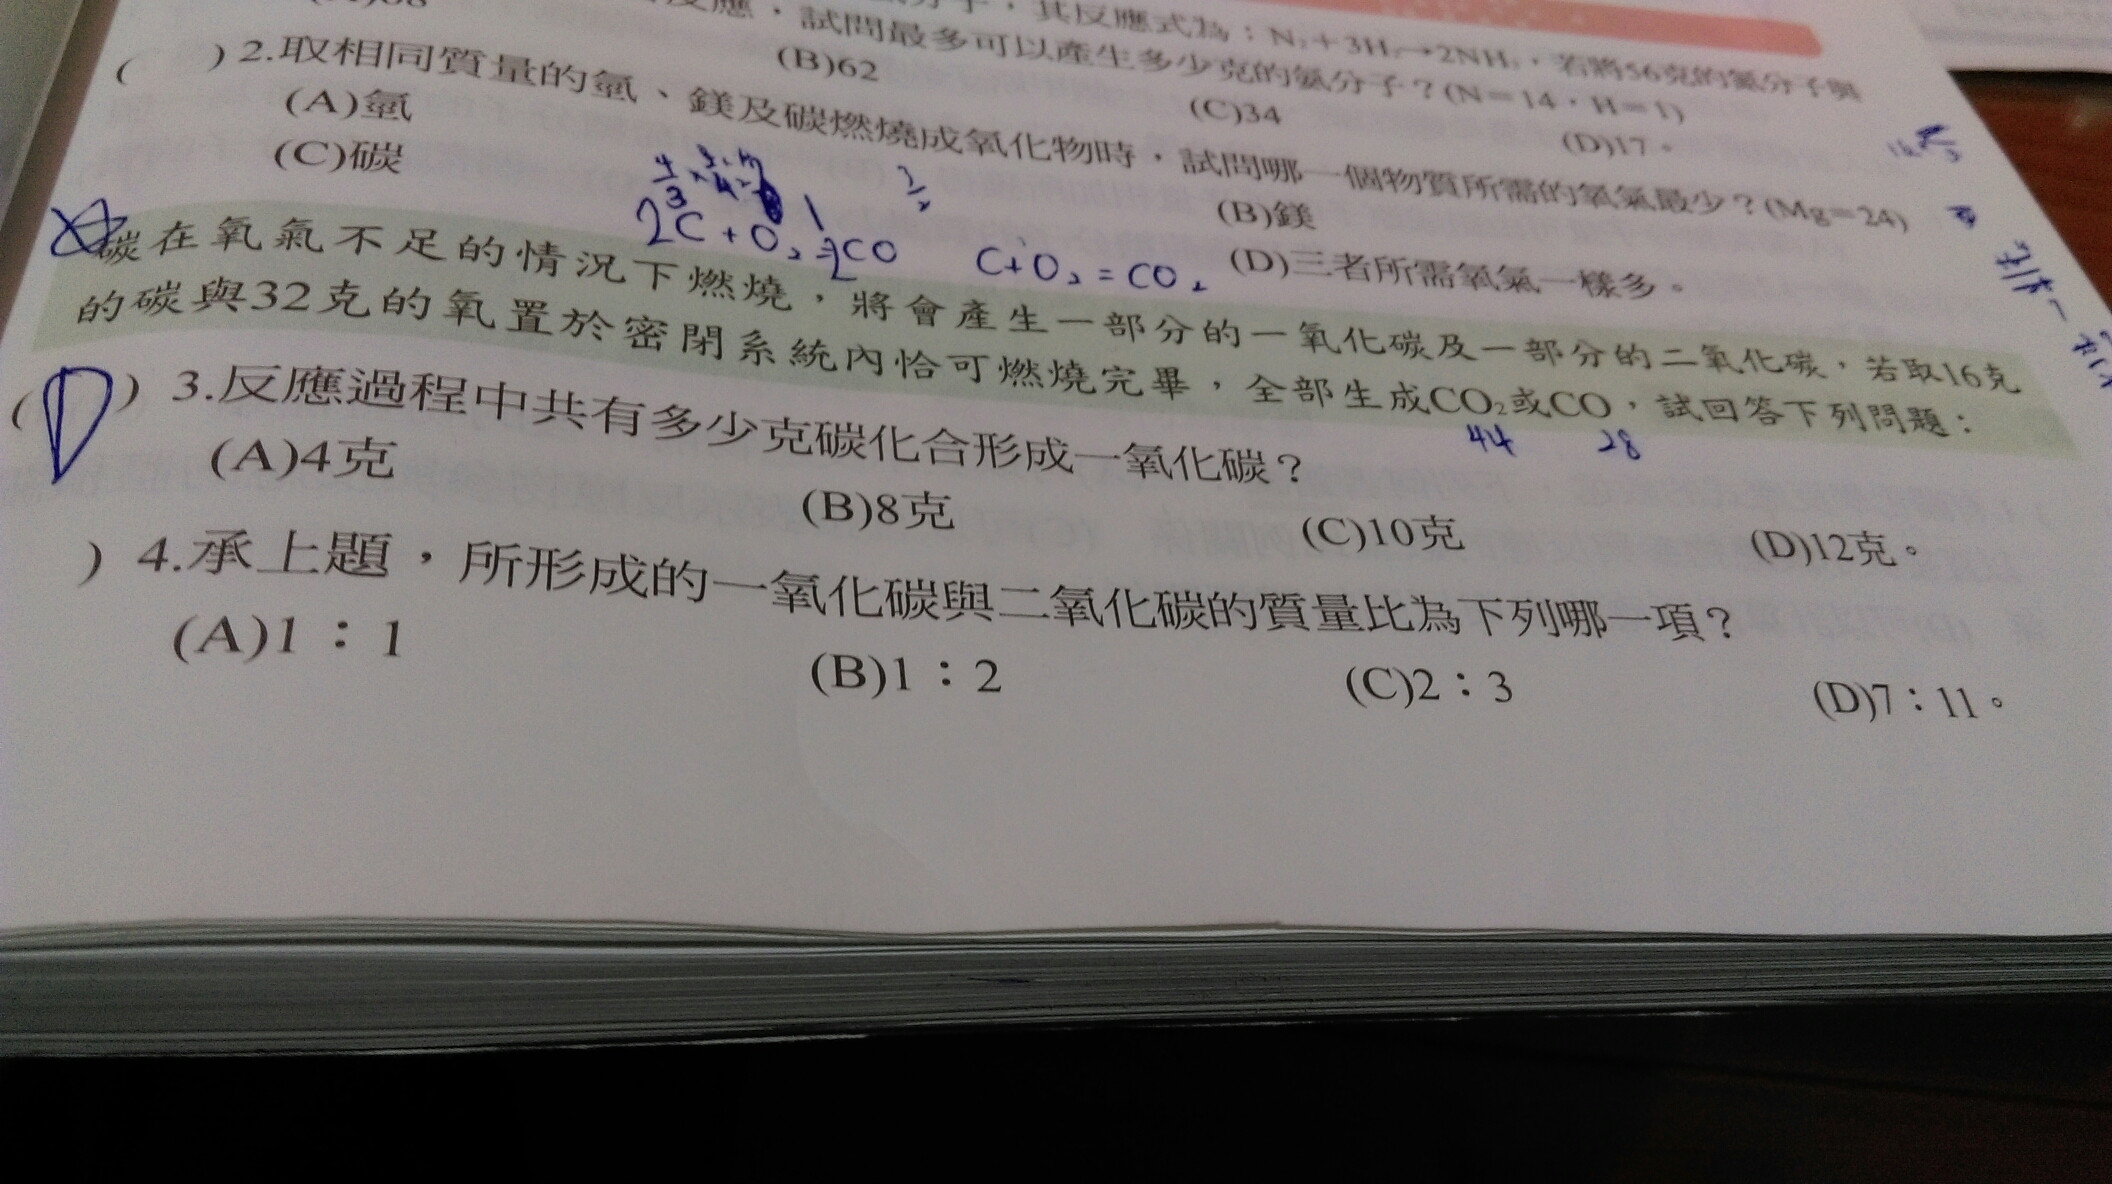 其反應式為：N₂＋3H₂→2NH₃，若將56克的氮分子與
反應，試問最多可以產生多少克的氨分子？(N＝14，H＝1)
(B)62 (C)34 (D)17。
( )2.取相同質量的氫、鎂及碳燃燒成氧化物時，試問哪一個物質所需的氧氣最少？(Mg＝24)
(A)氫 (B)鎂
(C)碳 (D)三者所需氧氣一樣多。
2C + O₂ = 2CO C + O₂ = CO₂
碳在氧氣不足的情況下燃燒，將會產生一部分的一氧化碳及一部分的二氧化碳，若取16克
的碳與32克的氧置於密閉系統內恰可燃燒完畢，全部生成CO₂或CO，試回答下列問題：
44 28
(D) 3.反應過程中共有多少克碳化合形成一氧化碳？
(A)4克 (B)8克 (C)10克 (D)12克。
) 4.承上題，所形成的一氧化碳與二氧化碳的質量比為下列哪一項？
(A)1：1 (B)1：2 (C)2：3 (D)7：11。